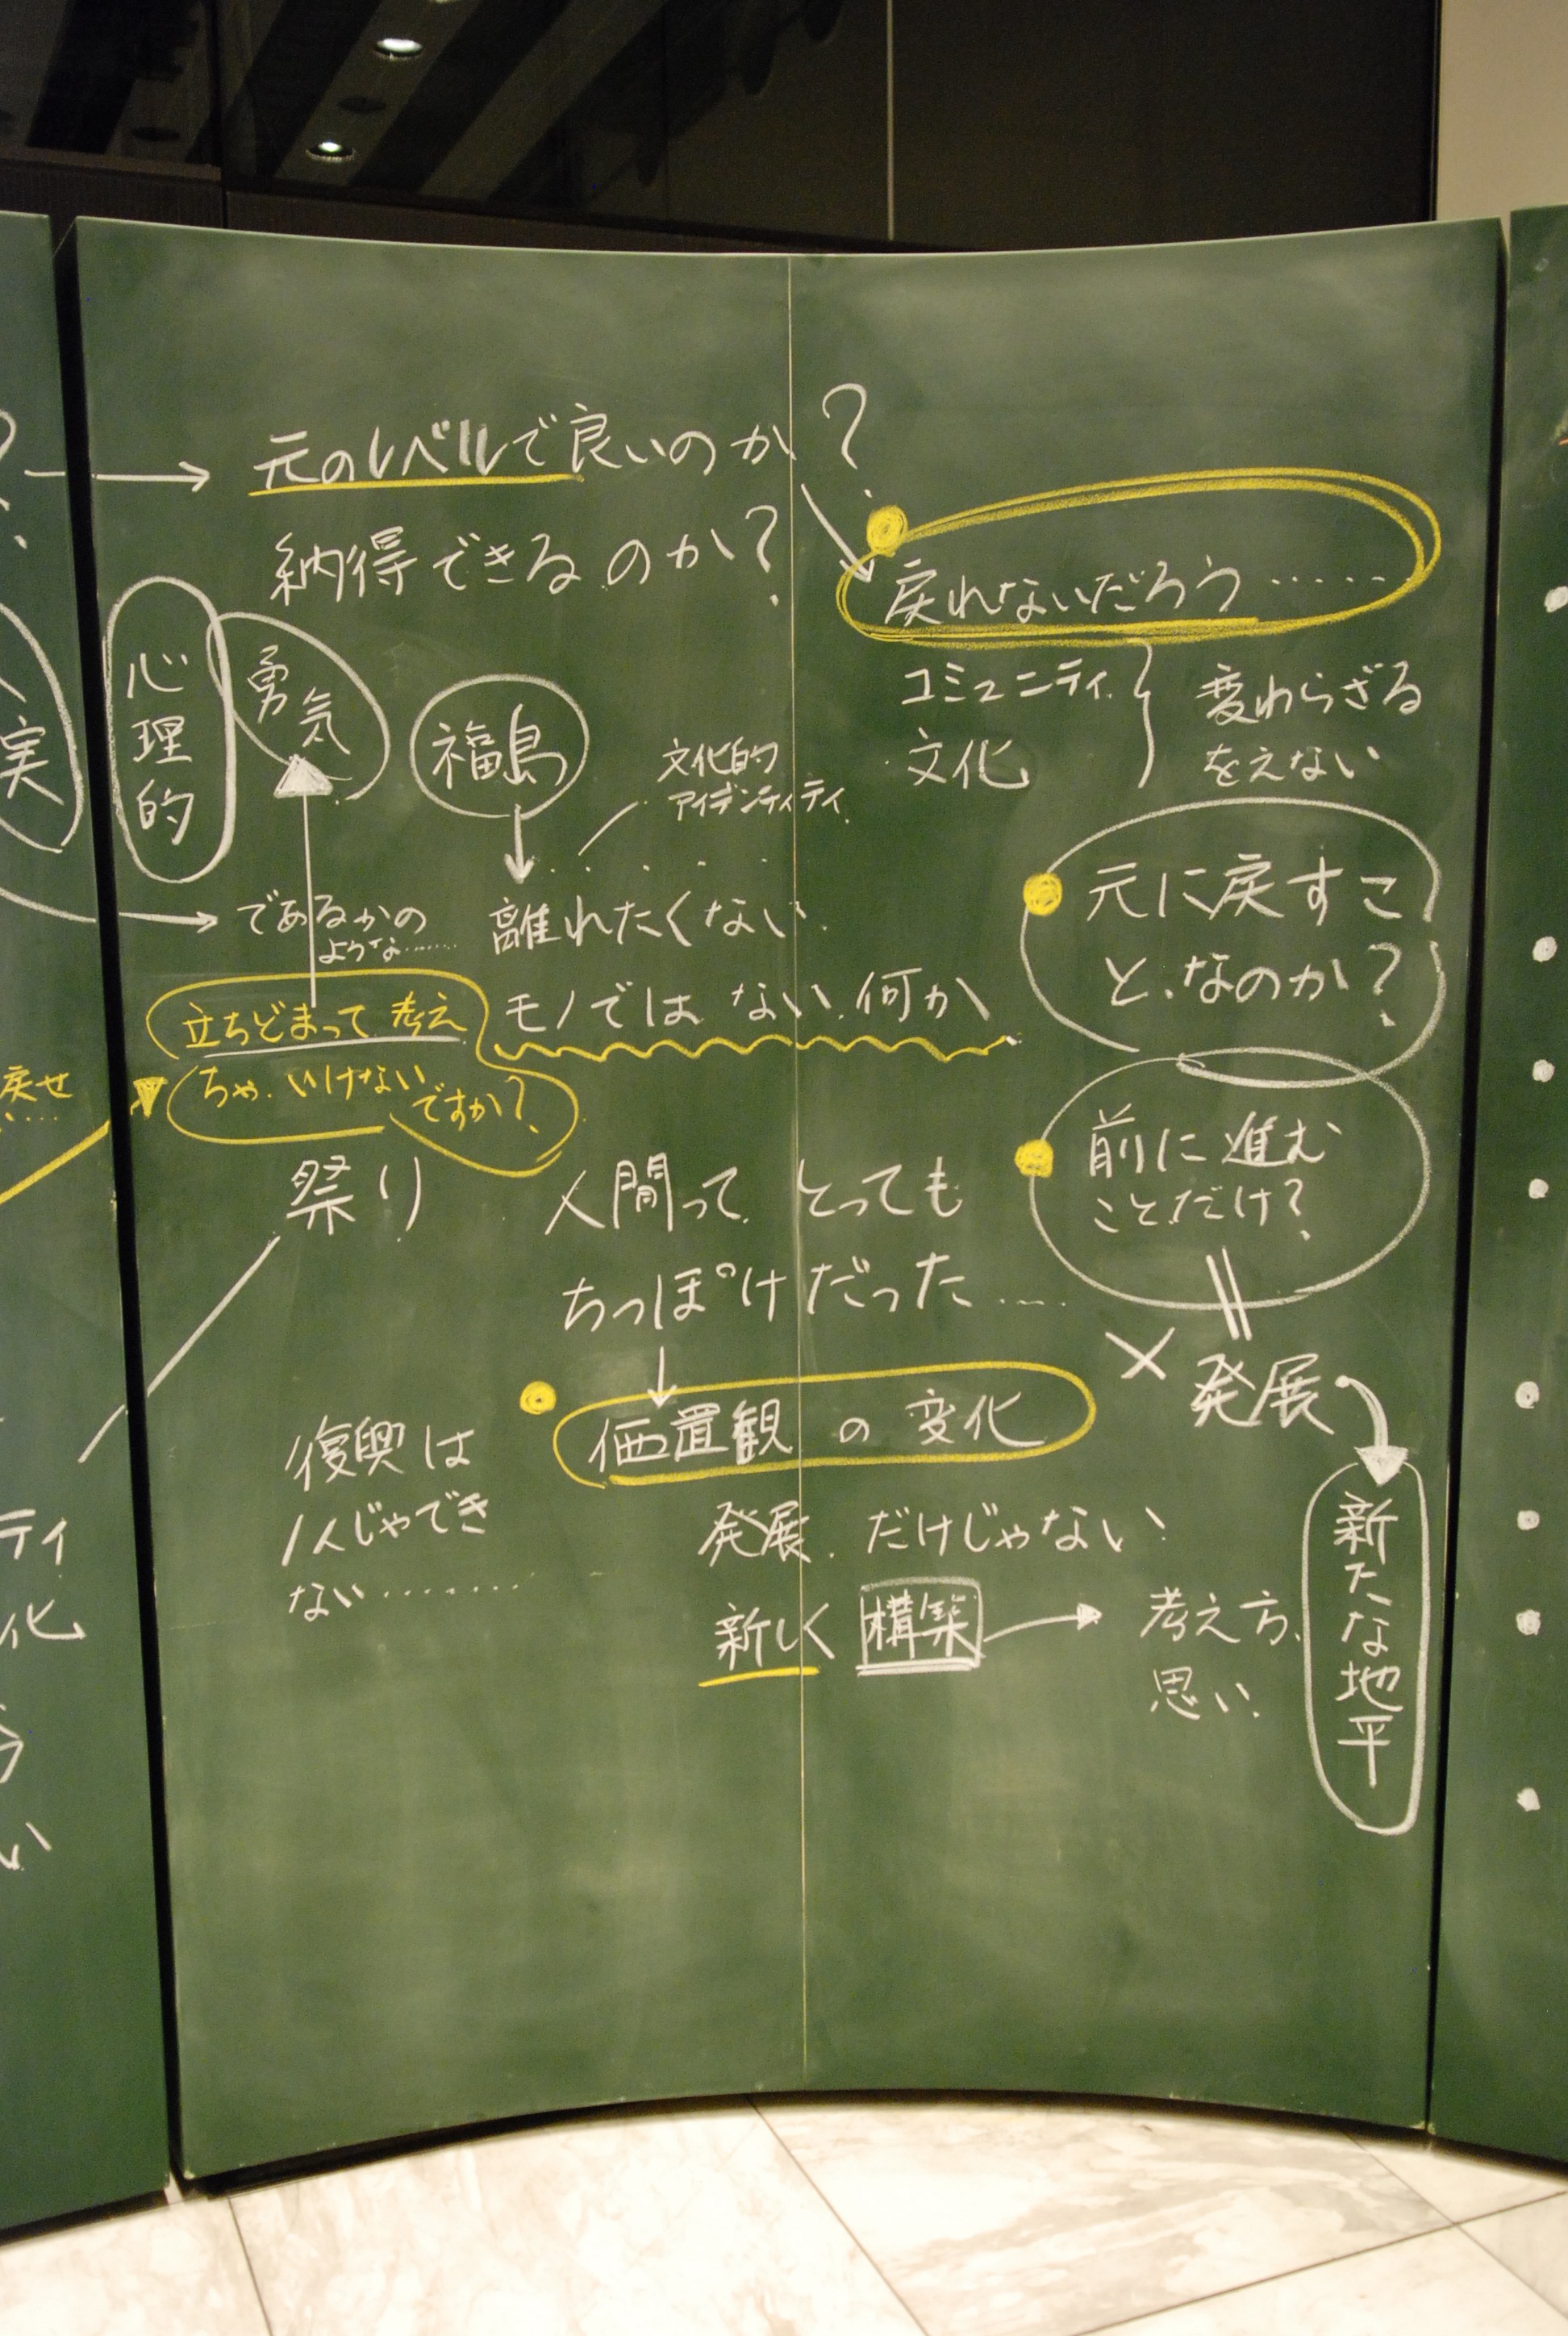 元のレベルで良いのか?
納得できるのか?
戻れないだろう……
コミュニティ
文化
変わらざる
をえない
心理的
勇気
福島
文化的
アイデンティティ
であるかの
ような……
離れたくない
モノではない何か
立ちどまって考え
ちゃいけない
ですか?
元に戻すこ
となのか?
前に進む
ことだけ?
祭り
人間って とっても
ちっぽけだった……
× 発展
価置観の変化
復興は
1人じゃでき
ない………
発展だけじゃない
新しく構築
考え方、
思い
新たな地平
実
戻せ
ティ
化
い